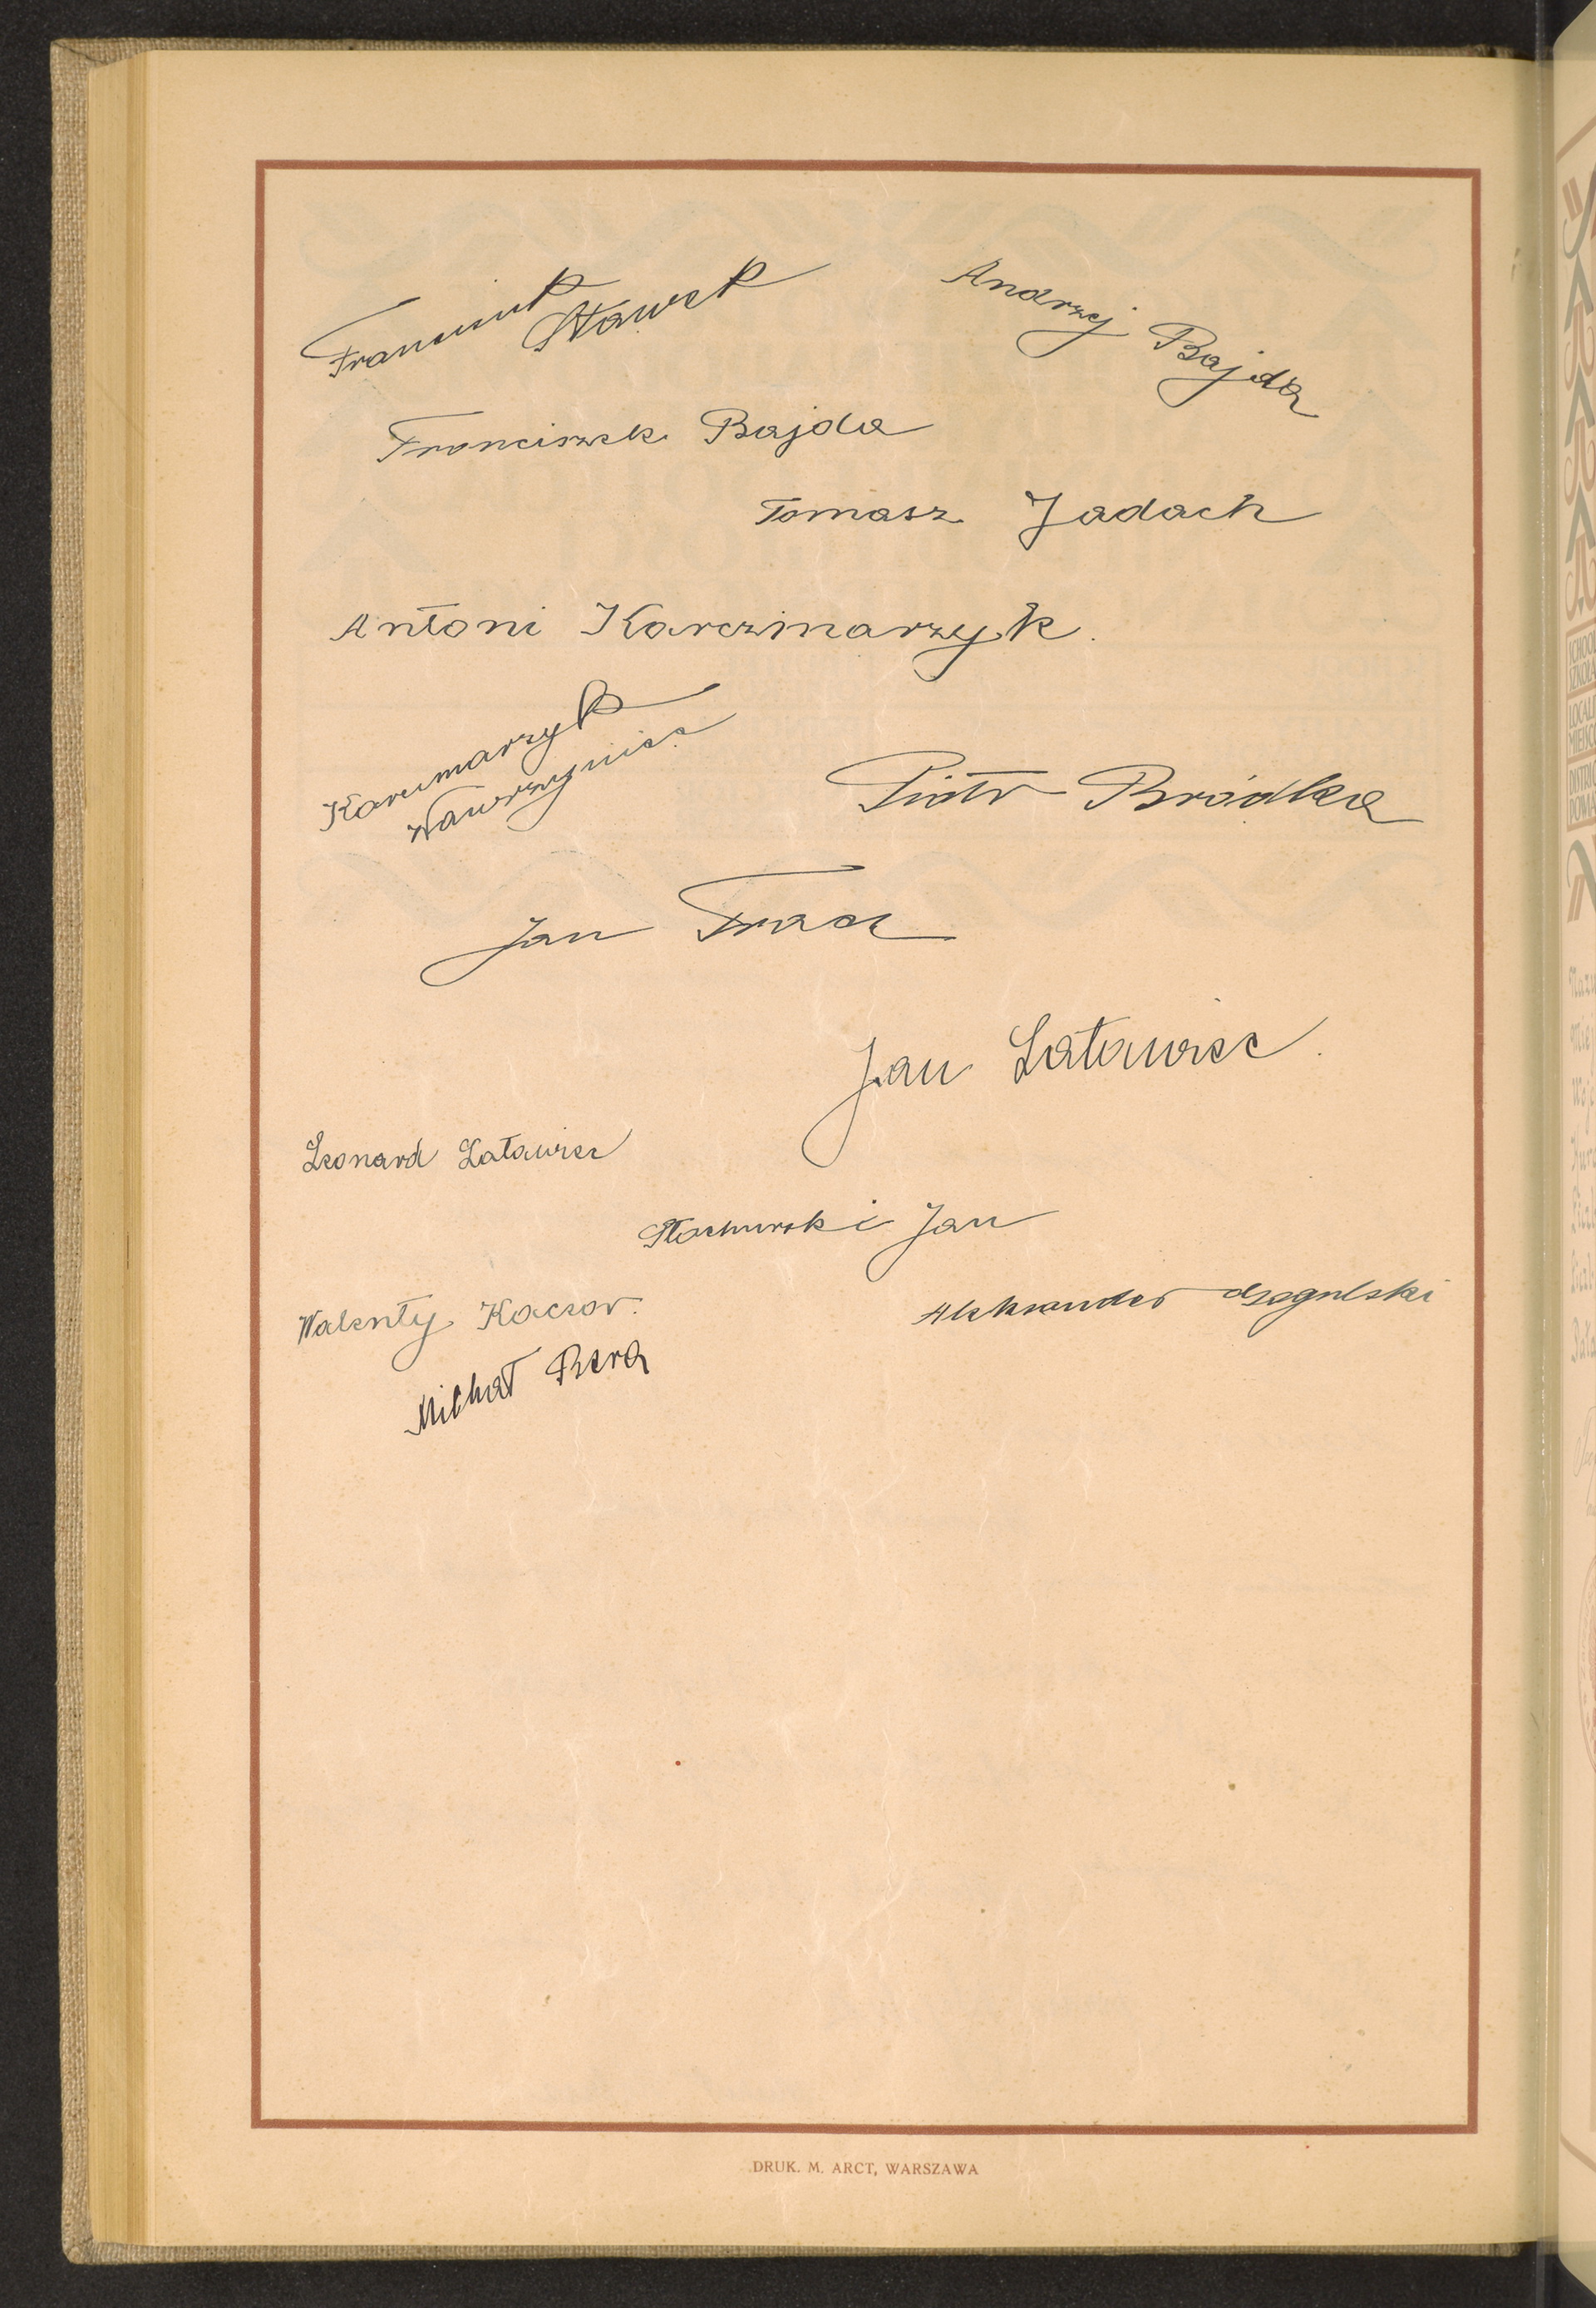 Franciszek Sławek
Andrzej Bajda
Franciszek Bajda
Tomasz Jadach
Antoni Karczmarzyk.
Karczmarzyk
Wawrzyniec
Piotr Bródka
Jan Frącz
Jan Latawiec.
Leonard Latawiec
Stachurski Jan
Walenty Kaczor.
Aleksander
Michał Bera
DRUK. M. ARCT, WARSZAWA